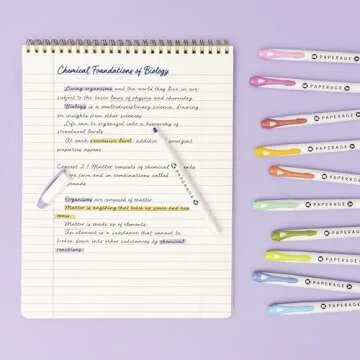 Chemical Foundations of Biology
Living organisms and the world they live in are
subject to the basic laws of physics and chemistry.
Biology is a multidisciplinary science, drawing
on insights from other sciences.
Life can be organized into a hierarchy of
structural levels.
At each successive level, additional emergent
properties appear.
Concept 2.1 Matter consists of chemical
in pure form and in combinations called
Organisms are composed of matter.
Matter is anything that takes up space and has
mass.
Matter is made up of elements.
An element is a substance that cannot be
broken down into other substances by chemical
reactions.
PAPERAGE
PAPERAGE
PAPERAGE
PAPERAGE
PAPERAGE
PAPERAGE
PAPERAGE
PAPERAGE
PAPERAGE
PAPERAGE